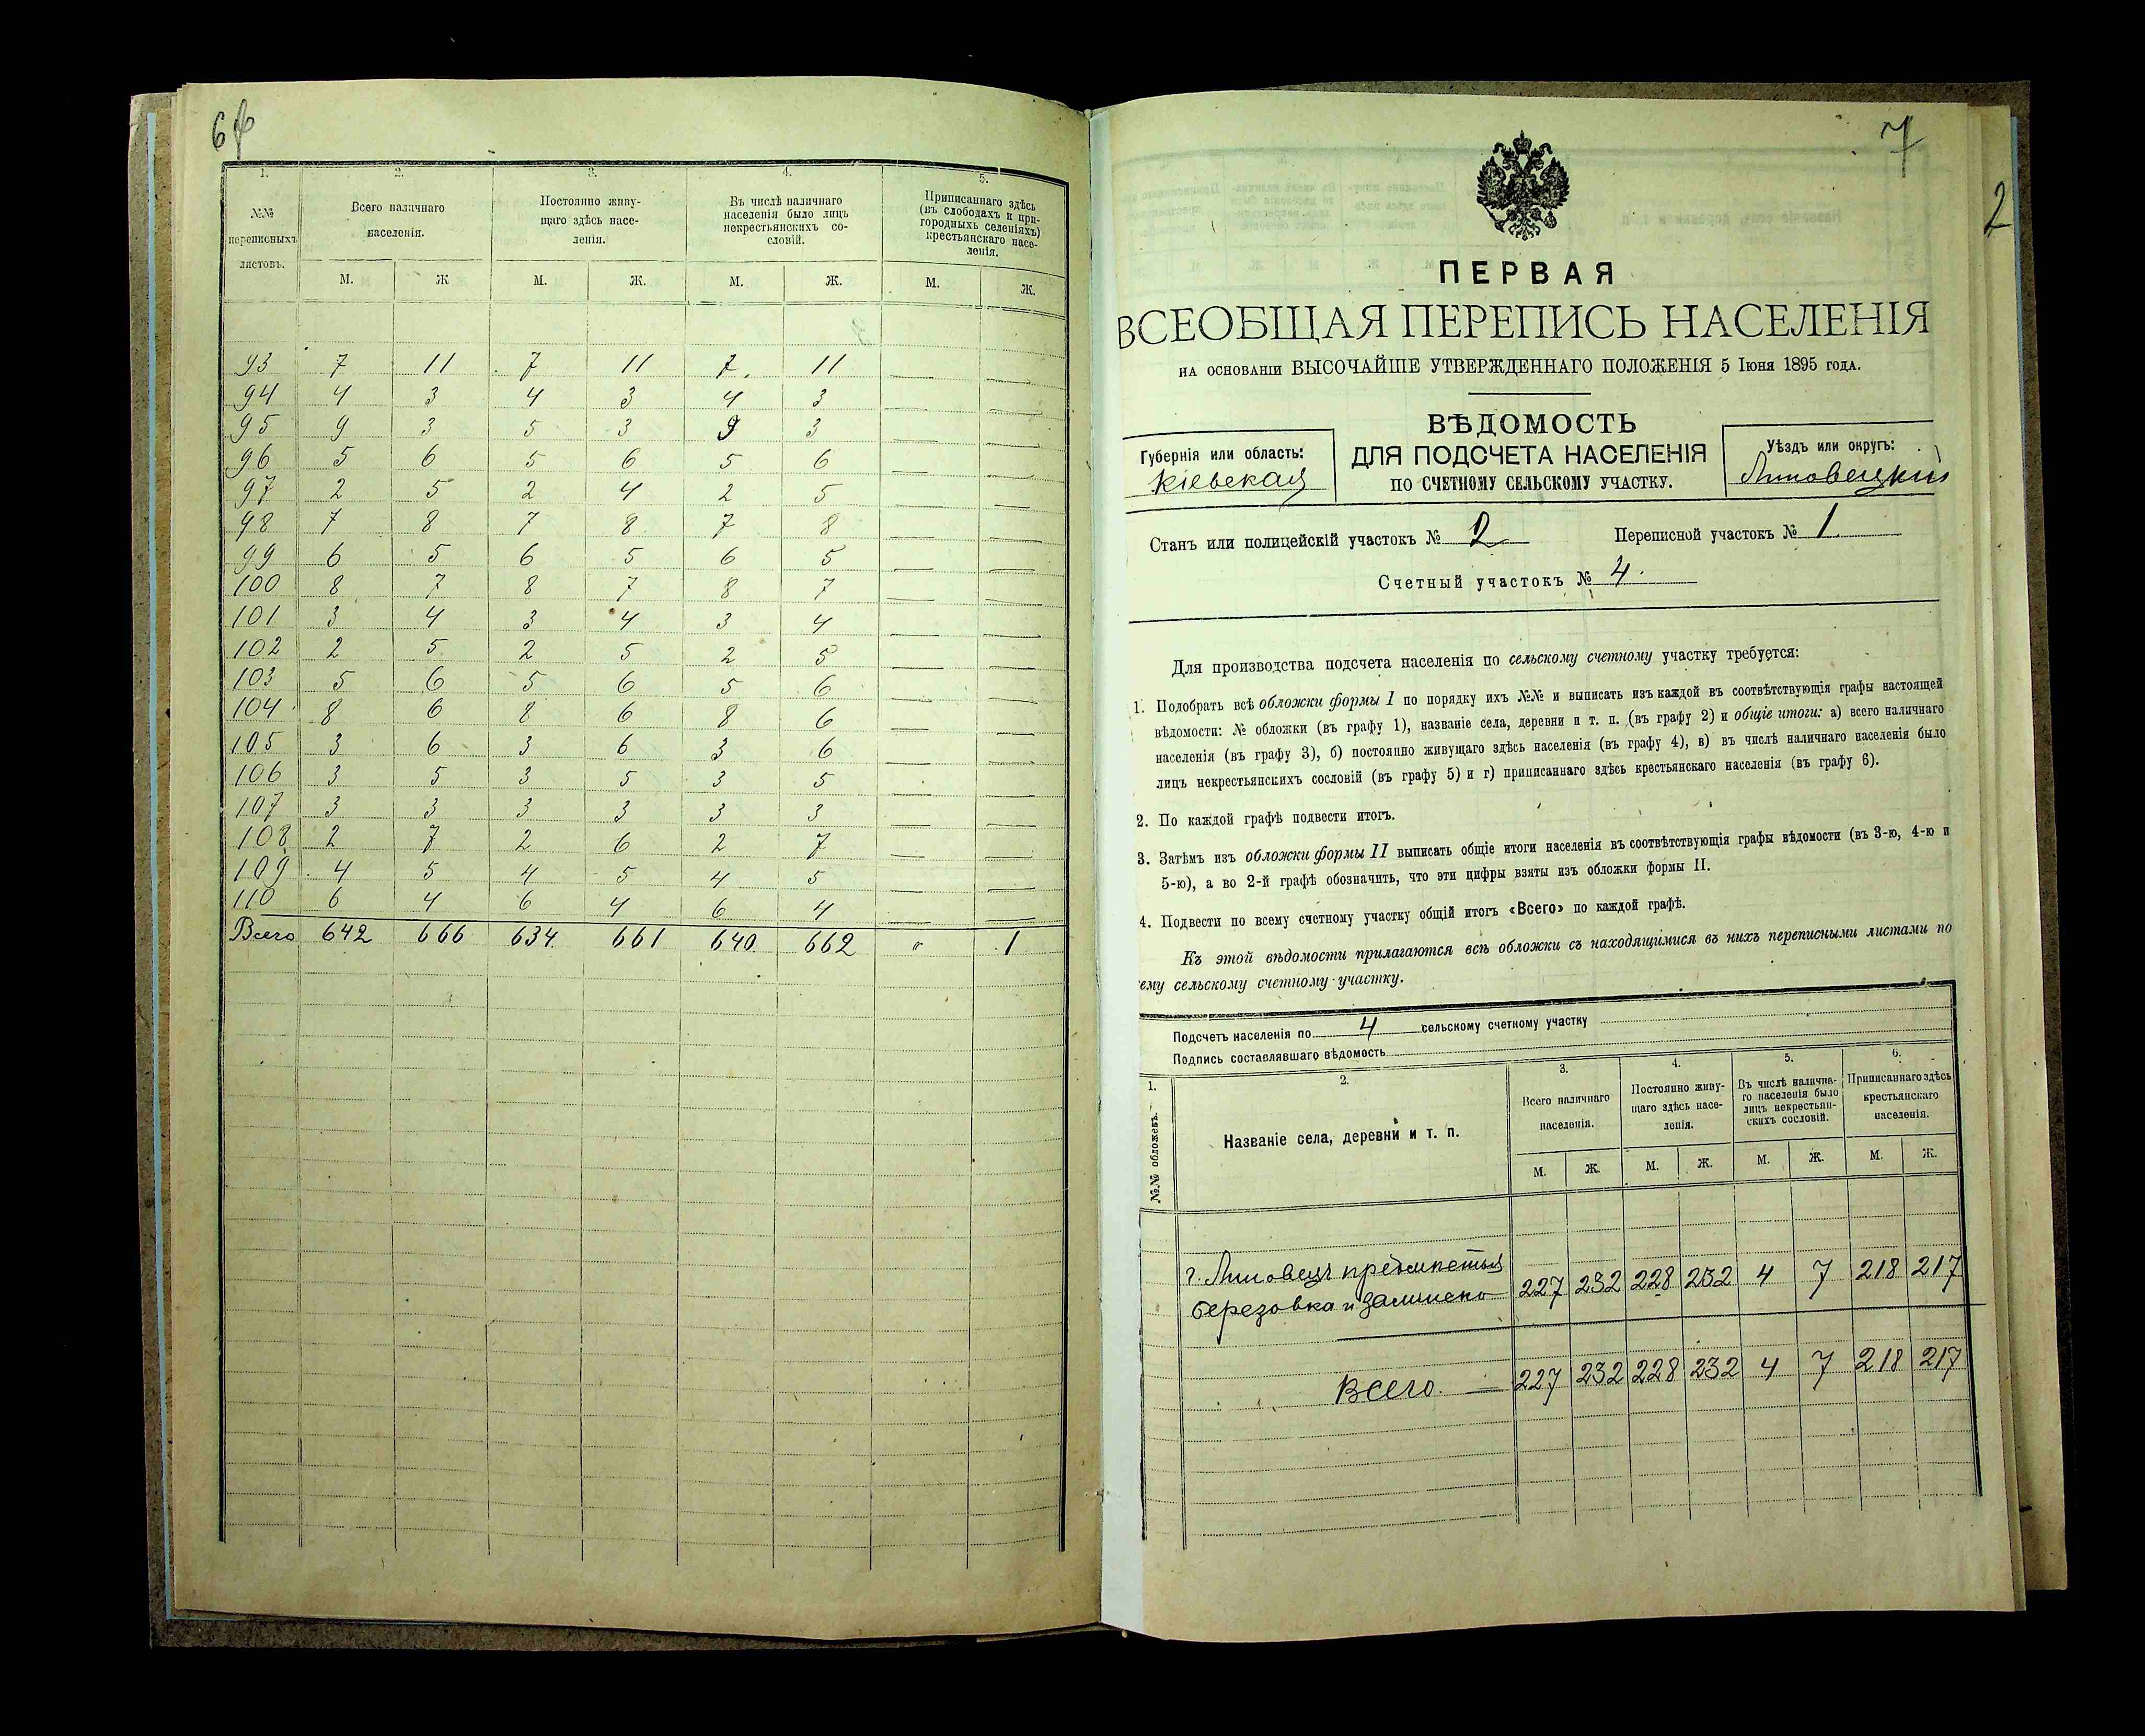 1.
2.
3.
4.
5.
№№
переписныхъ
листовъ.
Всего наличнаго
населенія.
Постоянно живу-
щаго здѣсь насе-
ленія.
Въ числѣ наличнаго
населенія было лицъ
некрестьянскихъ со-
словій.
Приписаннаго здѣсь
(въ слободахъ и при-
городныхъ селеніяхъ)
крестьянскаго насе-
ленія.
М. Ж М. Ж. М. Ж. М. Ж.
93 7 11 7 11 7 11 — —
94 4 3 4 3 4 3 — —
95 9 3 5 3 9 3 — —
96 5 6 5 6 5 6 — —
97 2 5 2 4 2 5 — —
98 7 8 7 8 7 8 — —
99 6 5 6 5 6 5 — —
100 8 7 8 7 8 7 — —
101 3 4 3 4 3 4 — —
102 2 5 2 5 2 5 — —
103 5 6 5 6 5 6 — —
104 8 6 8 6 8 6 — —
105 3 6 3 6 3 6 — —
106 3 5 3 5 3 5 — —
107 3 3 3 3 3 3 — —
108 2 7 2 6 2 7 — —
109 4 5 4 5 4 5 — —
110 6 4 6 4 6 4 — —
Всего 642 666 634 661 640 662 " 1
7
2
ПЕРВАЯ
ВСЕОБЩАЯ ПЕРЕПИСЬ НАСЕЛЕНІЯ
НА ОСНОВАНІИ ВЫСОЧАЙШЕ УТВЕРЖДЕННАГО ПОЛОЖЕНІЯ 5 Іюня 1895 года.
ВѢДОМОСТЬ
ДЛЯ ПОДСЧЕТА НАСЕЛЕНІЯ
ПО СЧЕТНОМУ СЕЛЬСКОМУ УЧАСТКУ.
Губернія или область:
Кіевская
Уѣздъ или округъ:
Липовецкій
Станъ или полицейскій участокъ № 2 Переписной участокъ № 1
Счетный участокъ № 4.
Для производства подсчета населенія по сельскому счетному участку требуется:
1. Подобрать всѣ обложки формы I по порядку ихъ №№ и выписать изъ каждой въ соотвѣтствующія графы настоящей
вѣдомости: № обложки (въ графу 1), названіе села, деревни и т. п. (въ графу 2) и общіе итоги: а) всего наличнаго
населенія (въ графу 3), б) постоянно живущаго здѣсь населенія (въ графу 4), в) въ числѣ наличнаго населенія было
лицъ некрестьянскихъ сословій (въ графу 5) и г) приписаннаго здѣсь крестьянскаго населенія (въ графу 6).
2. По каждой графѣ подвести итогъ.
3. Затѣмъ изъ обложки формы II выписать общіе итоги населенія въ соотвѣтствующія графы вѣдомости (въ 3-ю, 4-ю и
5-ю), а во 2-й графѣ обозначить, что эти цифры взяты изъ обложки формы II.
4. Подвести по всему счетному участку общій итогъ «Всего» по каждой графѣ.
Къ этой вѣдомости прилагаются всѣ обложки съ находящимися въ нихъ переписными листами по
ему сельскому счетному участку.
Подсчетъ населенія по 4 сельскому счетному участку
Подпись составлявшаго вѣдомость
1.
2.
3.
4.
5.
6.
№№ обложекъ.
Названіе села, деревни и т. п.
Всего наличнаго
населенія.
Постоянно живу-
щаго здѣсь насе-
ленія.
Въ числѣ налична-
го населенія было
лицъ некрестьян-
скихъ сословій.
Приписаннаго здѣсь
крестьянскаго
населенія.
М. Ж. М. Ж. М. Ж. М. Ж.
г. Липовецъ предмѣстья
березовка и
227 232 228 232 4 7 218 217
Всего. — 227 232 228 232 4 7 218 217